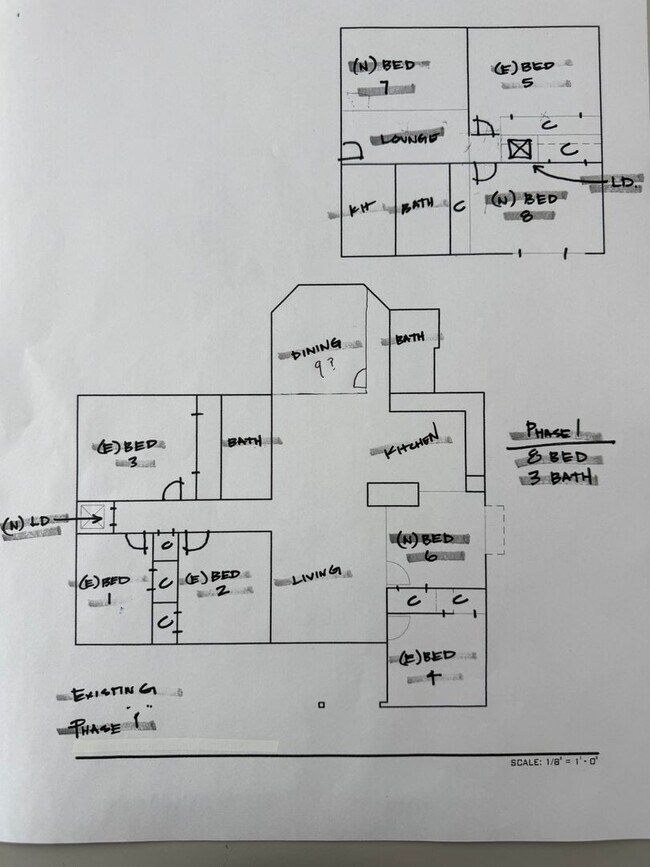 (N) BED
7
(E) BED
5
C
LOUNGE
C
LD.
KIT
BATH
C
(N) BED
8
DINING
9?
BATH
(E) BED
3
BATH
KITCHEN
PHASE 1
8 BED
3 BATH
(N) LD
C
(E) BED
1
C
(E) BED
2
LIVING
(N) BED
6
C
C
C
(E) BED
4
EXISTING
PHASE "1"
SCALE: 1/8" = 1' - 0"